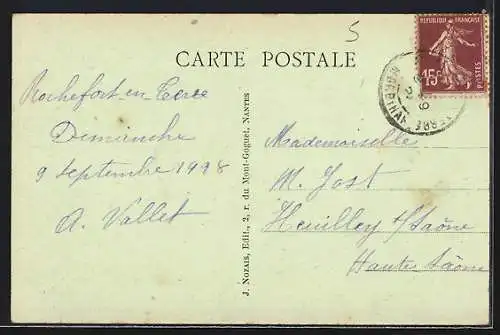 5
CARTE POSTALE
REPUBLIQUE FRANÇAISE
15c
POSTES
Rochefort-en-Terre
Dimanche
9 septembre 1928
A. Vallet
J. NOZAIS, Edit., 2, r. du Mont-Goguet, NANTES
Mademoiselle
M. Jost
Heuilley s/Saône
Haute Saône